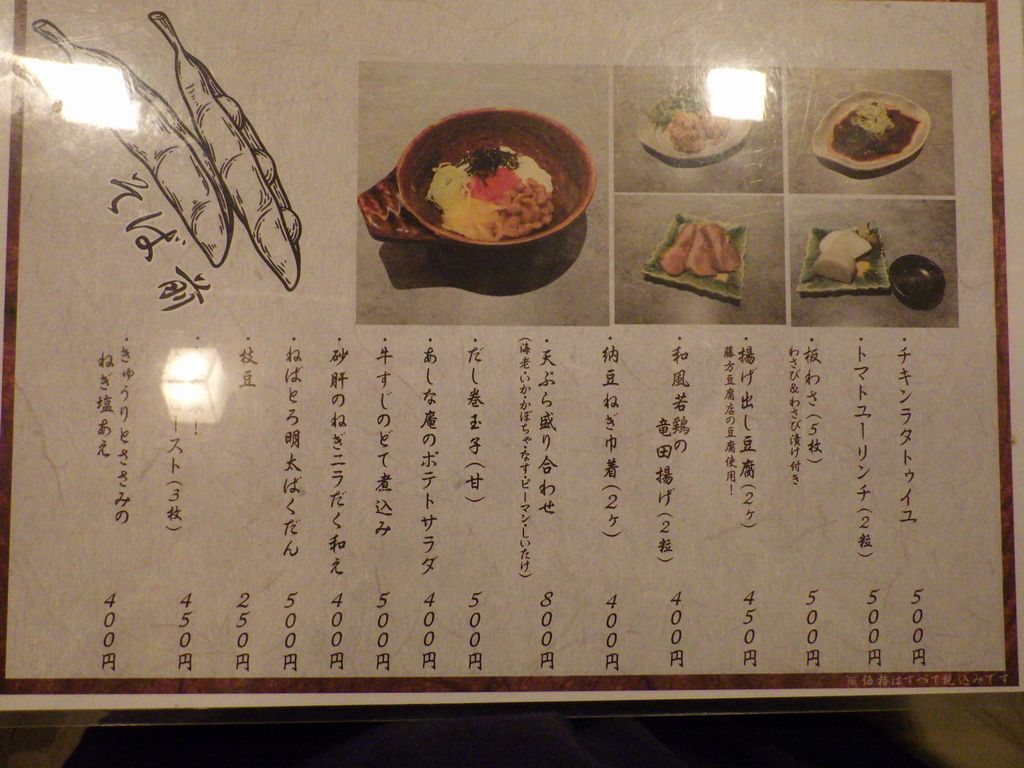 そば前
・チキンラタトゥイユ 500円
・トマトユーリンチ(2粒) 500円
・板わさ(5枚) 500円
わさび&わさび漬け付き
・揚げ出し豆腐(2ケ) 450円
藤方豆腐店の豆腐使用!
・和風若鶏の
竜田揚げ(2粒) 400円
・納豆ねぎ巾着(2ケ) 400円
・天ぷら盛り合わせ 800円
(海老・いか・かぼちゃ・なす・ピーマン・しいたけ)
・だし巻玉子(甘) 500円
・あしな庵のポテトサラダ 400円
・牛すじのどて煮込み 500円
・砂肝のねぎニラだく和え 400円
・ねばとろ明太ばくだん 500円
・枝豆 250円
スト(3枚) 450円
・きゅうりとささみの
ねぎ塩あえ 400円
※価格はすべて税込みです